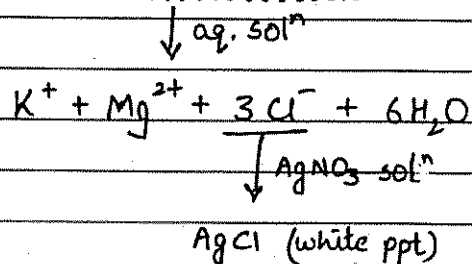 ↓ aq. solⁿ
K⁺ + Mg²⁺ + 3 Cl⁻ + 6H₂O
↓ AgNO₃ solⁿ
AgCl (white ppt)